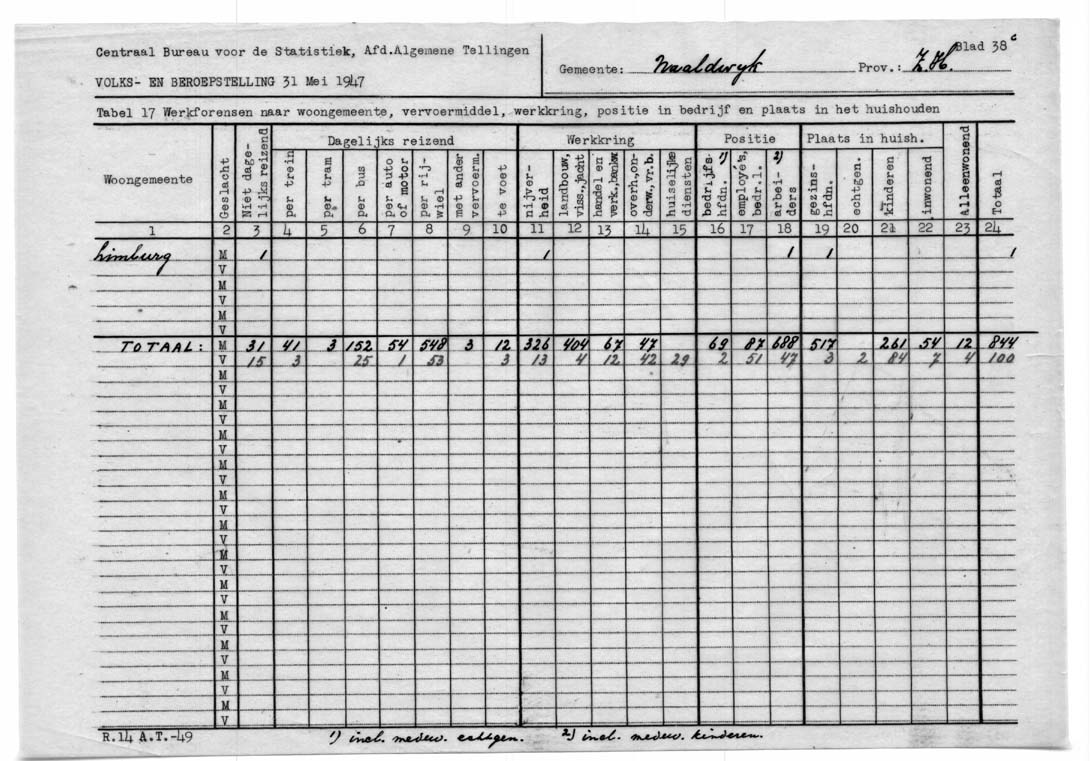 Centraal Bureau voor de Statistiek, Afd.Algemene Tellingen
VOLKS- EN BEROEPSTELLING 31 Mei 1947
Gemeente: Naaldwyk Prov.: Z.H. Blad 38c
Tabel 17 Werkforensen naar woongemeente, vervoermiddel, werkkring, positie in bedrijf en plaats in het huishouden
Woongemeente Geslacht Niet dage-lijks reizend Dagelijks reizend Werkkring Positie Plaats in huish. Alleenwonend Totaal
per trein per tram per bus per auto of motor per rij-wiel met ander vervoerm. te voet nijver-heid landbouw, viss.,jacht handel en verk.,bankw. overh.,on-derw.,vr.b. huiselijke diensten bedrijfs-hfdn. 1) employé's, bedr.l. arbei-ders 2) gezins-hfdn. echtgen. kinderen inwonend
1 2 3 4 5 6 7 8 9 10 11 12 13 14 15 16 17 18 19 20 21 22 23 24
Limburg M 1 1 1 1 1
V
M
V
M
V
TOTAAL: M 31 41 3 152 54 548 3 12 326 404 67 47 69 87 688 517 261 54 12 844
V 15 3 25 1 53 3 13 4 12 42 29 2 51 47 3 2 84 7 4 100
M
V
M
V
M
V
M
V
M
V
M
V
M
V
M
V
M
V
M
V
M
V
M
V
R.14 A.T.-49 1) incl. medew. echtgen. 2) incl. medew. kinderen.